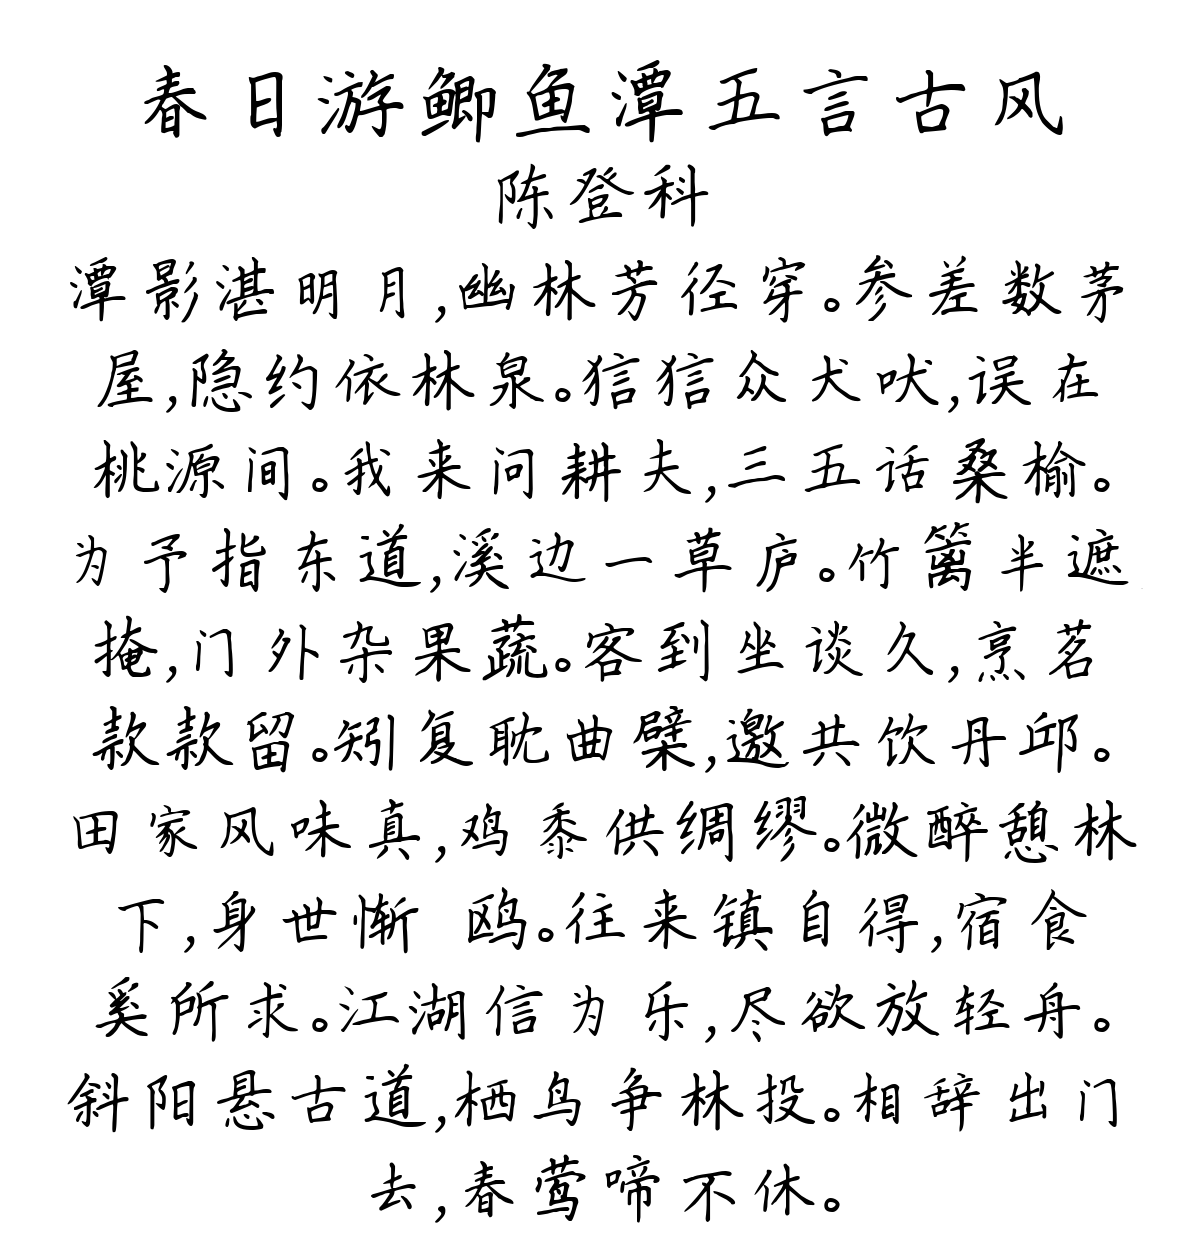 春日游鲫鱼潭五言古风
陈登科
潭影湛明月,幽林芳径穿。参差数茅
屋,隐约依林泉。狺狺众犬吠,误在
桃源间。我来问耕夫,三五话桑榆。
为予指东道,溪边一草庐。竹篱半遮
掩,门外杂果蔬。客到坐谈久,烹茗
款款留。矧复耽曲糵,邀共饮丹邱。
田家风味真,鸡黍供绸缪。微醉憩林
下,身世惭 鸥。往来镇自得,宿食
奚所求。江湖信为乐,尽欲放轻舟。
斜阳悬古道,栖鸟争林投。相辞出门
去,春莺啼不休。